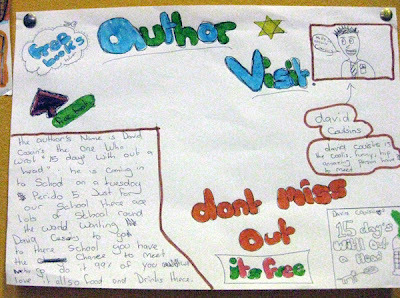 free
books
Author
Visit
david
Cousins
david cousins is
the coolist, funny, hip
amazing person
to meet
free book
The author's Name is David
Cousins the one Who
wrot "15 days with out a
head". he is coming in
to School on a tuesday
Perido 5 Just for
our School there are
lots of School round
the world Wanting
Doug Casey to go
to there School you have
the Chance to Meet
do it 99% of you
love it also food and Drinks there.
dont Miss
Out
its free
15 day's
With out
a Head